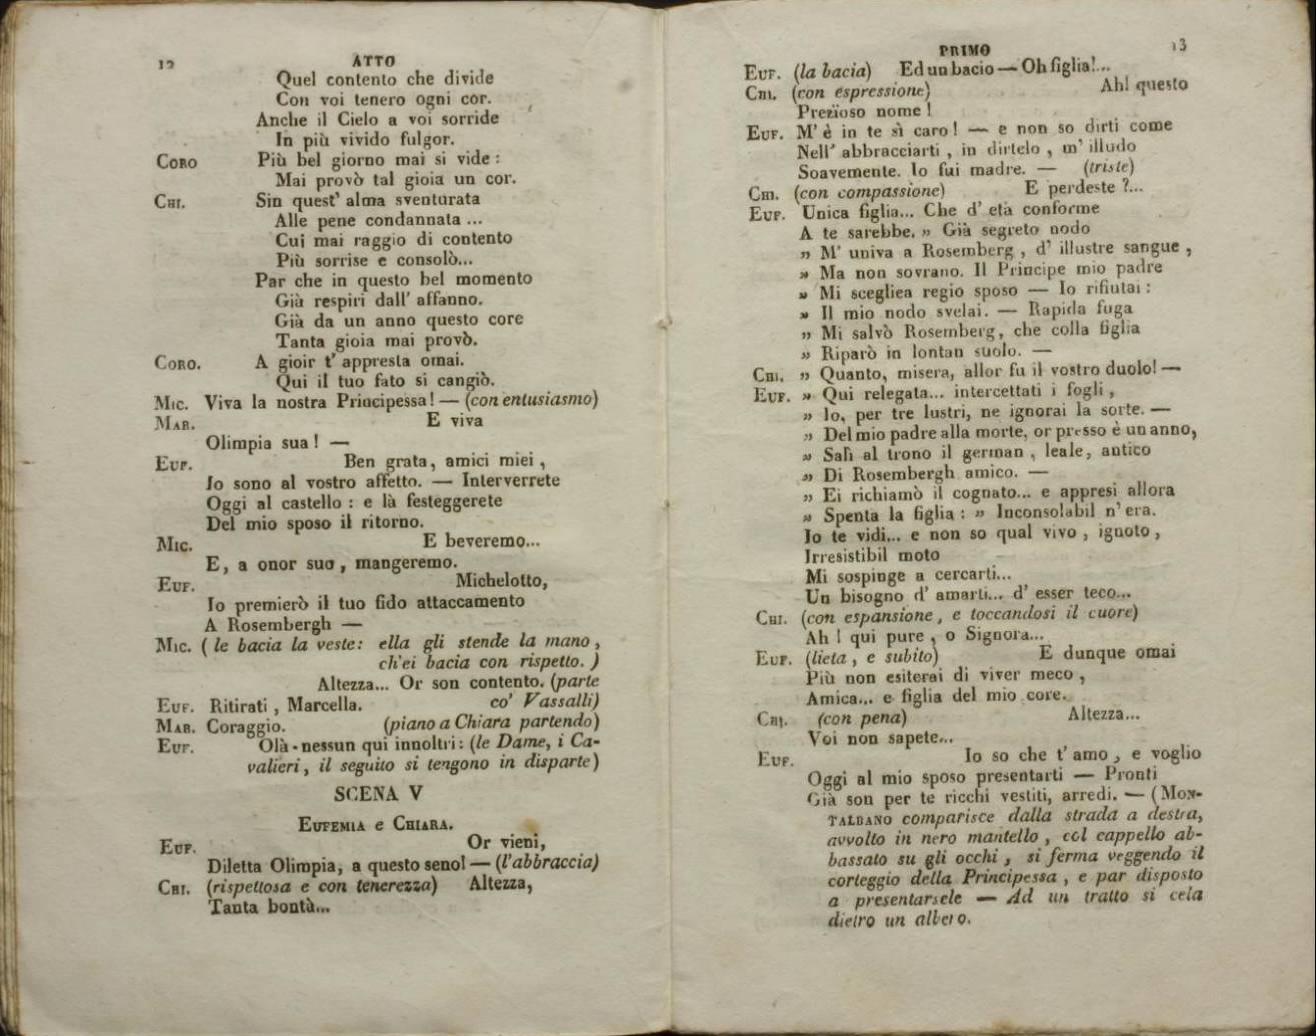 12
ATTO
Quel contento che divide
Con voi tenero ogni cor.
Anche il Cielo a voi sorride
In più vivido fulgor.
CORO Più bel giorno mai si vide :
Mai provò tal gioia un cor.
CHI. Sin quest' alma sventurata
Alle pene condannata ...
Cui mai raggio di contento
Più sorrise e consolò...
Par che in questo bel momento
Già respiri dall' affanno.
Già da un anno questo core
Tanta gioia mai provò.
CORO. A gioir t' appresta omai.
Qui il tuo fato si cangiò.
MIC. Viva la nostra Principessa! — (con entusiasmo)
MAR. E viva
Olimpia sua ! —
EUF. Ben grata, amici miei ,
Io sono al vostro affetto. — Interverrete
Oggi al castello : e là festeggerete
Del mio sposo il ritorno.
MIC. E beveremo...
E, a onor suo, mangeremo.
EUF. Michelotto,
Io premierò il tuo fido attaccamento
A Rosembergh —
MIC. ( le bacia la veste: ella gli stende la mano,
ch'ei bacia con rispetto. )
Altezza... Or son contento. (parte
EUF. Ritirati , Marcella. co' Vassalli)
MAR. Coraggio. (piano a Chiara partendo)
EUF. Olà - nessun qui innoltri: (le Dame, i Ca-
valieri, il seguito si tengono in disparte)
SCENA V
EUFEMIA e CHIARA.
EUF. Or vieni,
Diletta Olimpia, a questo seno! — (l'abbraccia)
CHI. (rispettosa e con tenerezza) Altezza,
Tanta bontà...
PRIMO
13
EUF. (la bacia) Ed un bacio — Oh figlia!...
CHI. (con espressione) Ah! questo
Prezioso nome !
EUF. M' è in te sì caro ! — e non so dirti come
Nell' abbracciarti , in dirtelo , m' illudo
Soavemente. Io fui madre. — (triste)
CHI. (con compassione) E perdeste ?...
EUF. Unica figlia... Che d' età conforme
A te sarebbe. » Già segreto nodo
» M' univa a Rosemberg , d' illustre sangue ,
» Ma non sovrano. Il Principe mio padre
» Mi scegliea regio sposo — Io rifiutai :
» Il mio nodo svelai. — Rapida fuga
» Mi salvò Rosemberg, che colla figlia
» Riparò in lontan suolo. —
CHI. » Quanto, misera, allor fu il vostro duolo! —
EUF. » Qui relegata... intercettati i fogli ,
» Io, per tre lustri, ne ignorai la sorte. —
» Del mio padre alla morte, or presso è un anno,
» Salì al trono il german , leale, antico
» Di Rosembergh amico. —
» Ei richiamò il cognato... e appresi allora
» Spenta la figlia : » Inconsolabil n' era.
Io te vidi... e non so qual vivo , ignoto ,
Irresistibil moto
Mi sospinge a cercarti...
Un bisogno d' amarti... d' esser teco...
CHI. (con espansione, e toccandosi il cuore)
Ah ! qui pure , o Signora...
EUF. (lieta , e subito) E dunque omai
Più non esiterai di viver meco ,
Amica... e figlia del mio core.
CHI. (con pena) Altezza...
Voi non sapete...
EUF. Io so che t' amo , e voglio
Oggi al mio sposo presentarti — Pronti
Già son per te ricchi vestiti, arredi. — (MON-
TALBANO comparisce dalla strada a destra,
avvolto in nero mantello , col cappello ab-
bassato su gli occhi , si ferma veggendo il
corteggio della Principessa , e par disposto
a presentarsele — Ad un tratto si cela
dietro un albero.